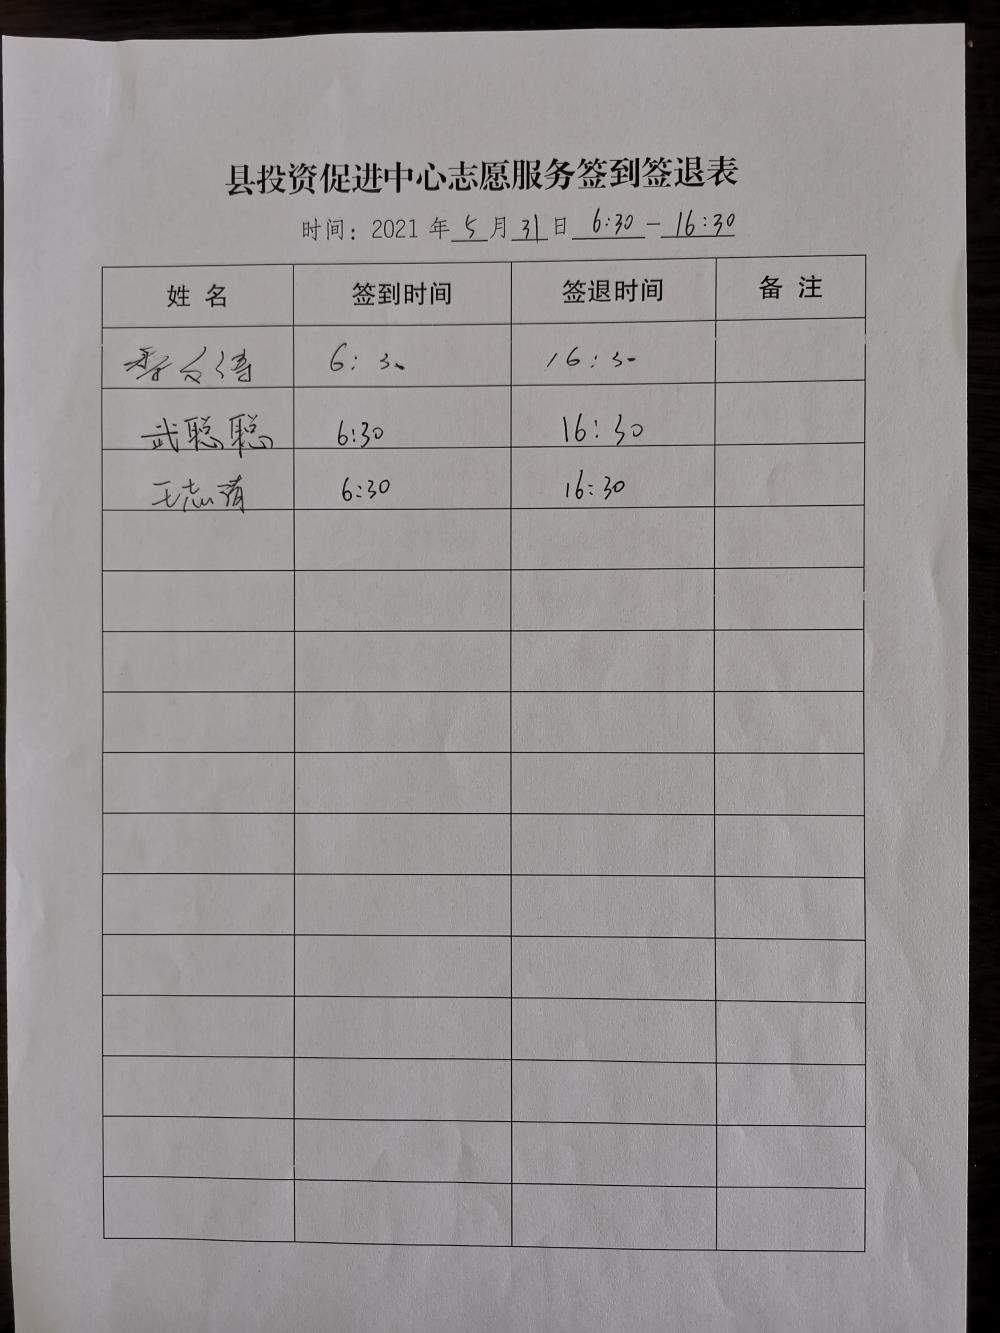 县投资促进中心志愿服务签到签退表
时间：2021年5月31日 6:30-16:30
姓名 签到时间 签退时间 备注
6:30 16:30
武聪聪 6:30 16:30
王志 6:30 16:30